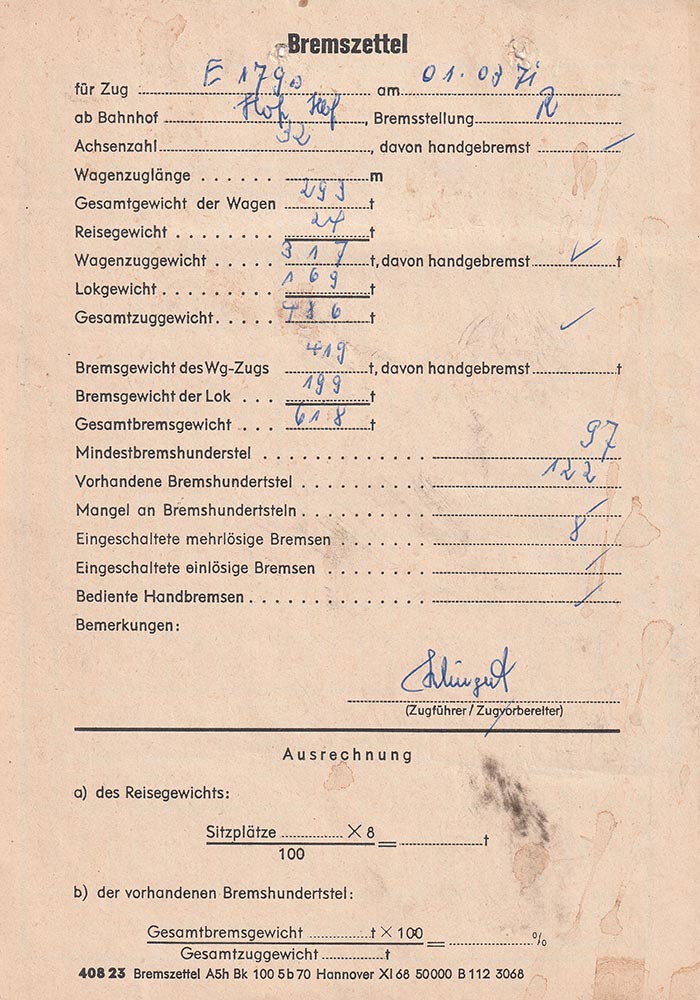 Bremszettel
für Zug E 1790 am 01.07.71
ab Bahnhof Hof Hbf, Bremsstellung R
Achsenzahl 32, davon handgebremst ✓
Wagenzuglänge . . . . . . m
Gesamtgewicht der Wagen 293 t
Reisegewicht . . . . . . . . 24 t
Wagenzuggewicht . . . . . 317 t, davon handgebremst ✓ t
Lokgewicht . . . . . . . . . . 169 t
Gesamtzuggewicht . . . . . 486 t ✓
Bremsgewicht des Wg-Zugs 419 t, davon handgebremst t
Bremsgewicht der Lok . . . 199 t
Gesamtbremsgewicht . . . 618 t
Mindestbremshunderstel . . . . . . . . . . . . . 97
Vorhandene Bremshundertstel . . . . . . . . . . 122
Mangel an Bremshundertsteln . . . . . . . . . . ✓
Eingeschaltete mehrlösige Bremsen . . . . . . . 8
Eingeschaltete einlösige Bremsen . . . . . . . ✓
Bediente Handbremsen . . . . . . . . . . . . . ✓
Bemerkungen:
(Zugführer / Zugvorbereiter)
Ausrechnung
a) des Reisegewichts:
Sitzplätze ............ × 8
= ............ t
100
b) der vorhandenen Bremshundertstel:
Gesamtbremsgewicht ............ t × 100
= ............ %
Gesamtzuggewicht ............ t
408 23 Bremszettel A5h Bk 100 5b 70 Hannover XI 68 50000 B 112 3068